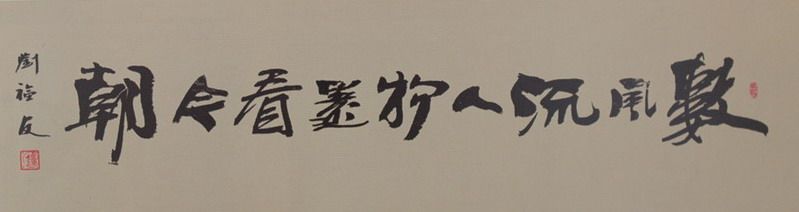 數風流人物還看今朝
劉友